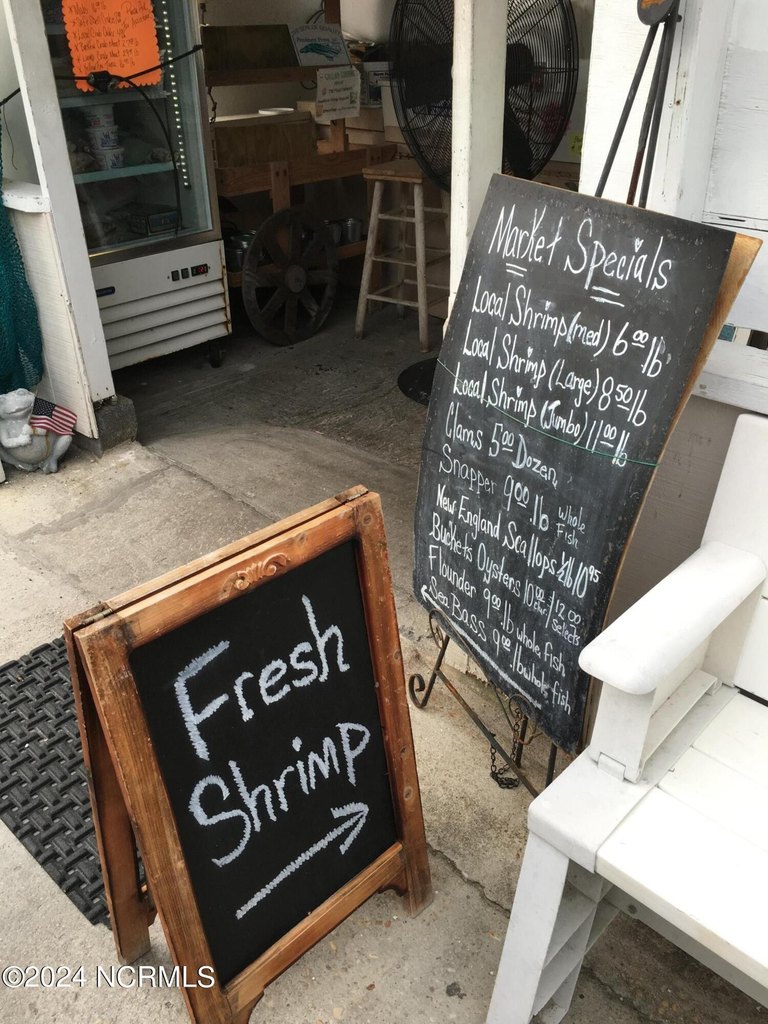 Market Specials
Local Shrimp (med) 6.00 lb
Local Shrimp (Large) 8.50 lb
Local Shrimp (Jumbo) 11.00 lb
Clams 5.00 Dozen
Snapper 9.00 lb Whole Fish
New England Scallops ½ lb 10.95
Buckets Oysters 10.00 / 12.00 selects
Flounder 9.00 lb whole fish
Sea Bass 9.00 lb whole fish
Fresh
Shrimp
©2024 NCRMLS